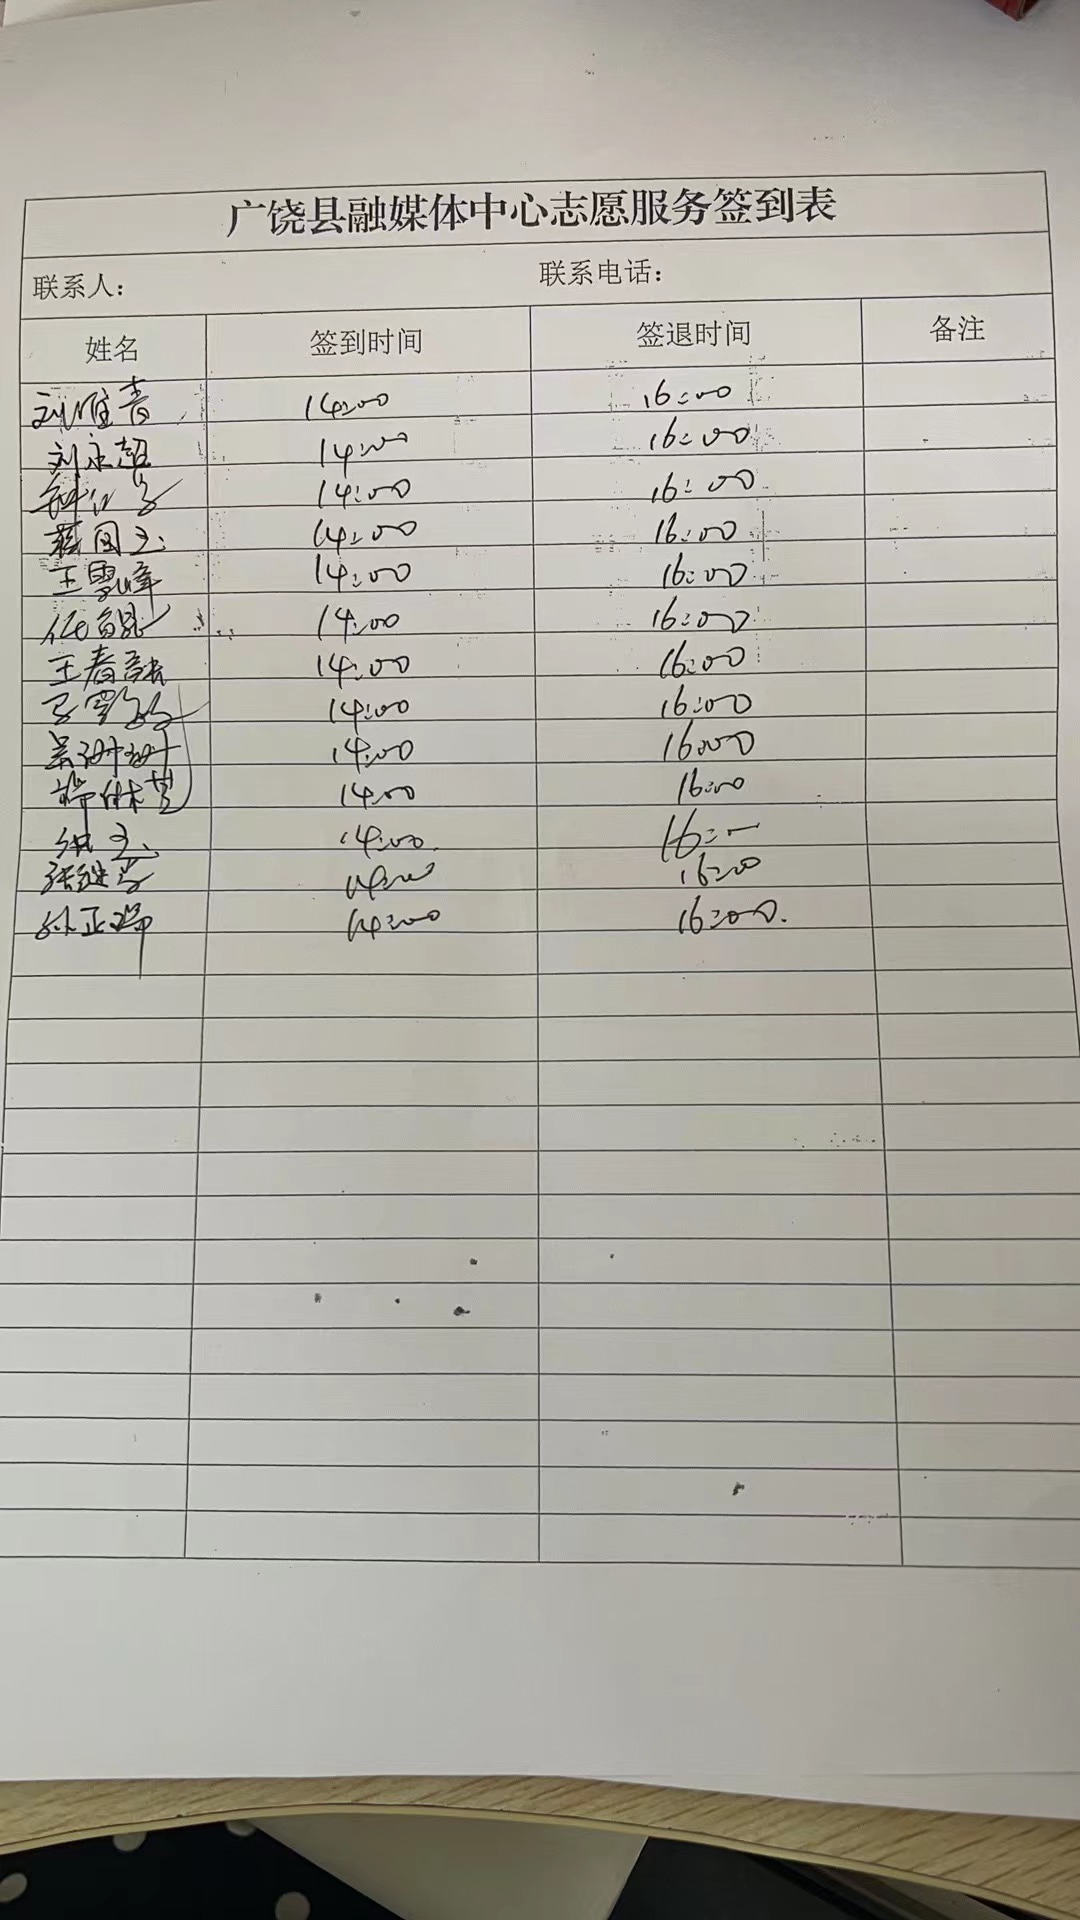 广饶县融媒体中心志愿服务签到表
联系人： 联系电话：
姓名 签到时间 签退时间 备注
刘雅青 14:00 16:00
刘永超 14:00 16:00
14:00 16:00
国玉 14:00 16:00
王雪峰 14:00 16:00
任 14:00 16:00
王春 14:00 16:00
14:00 16:00
吴珊珊 14:00 16:00
14:00 16:00
14:00 16:
张 14:00 16:00
孙正瑞 14:00 16:00